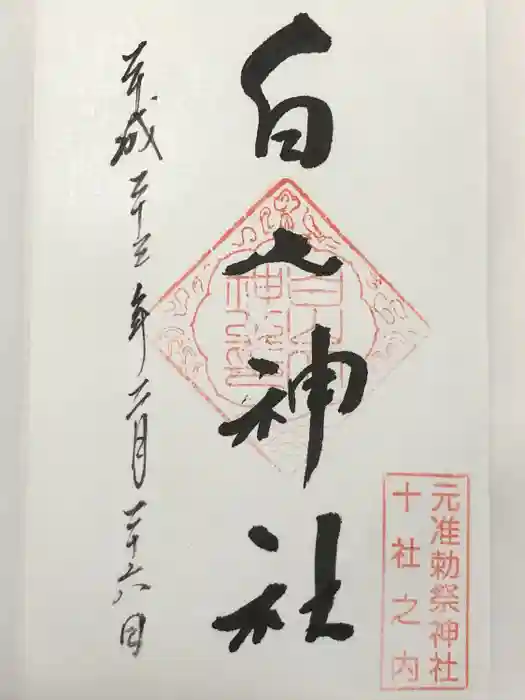 元准勅祭神社
十社之内
白山神社
平成二十三年二月二十六日